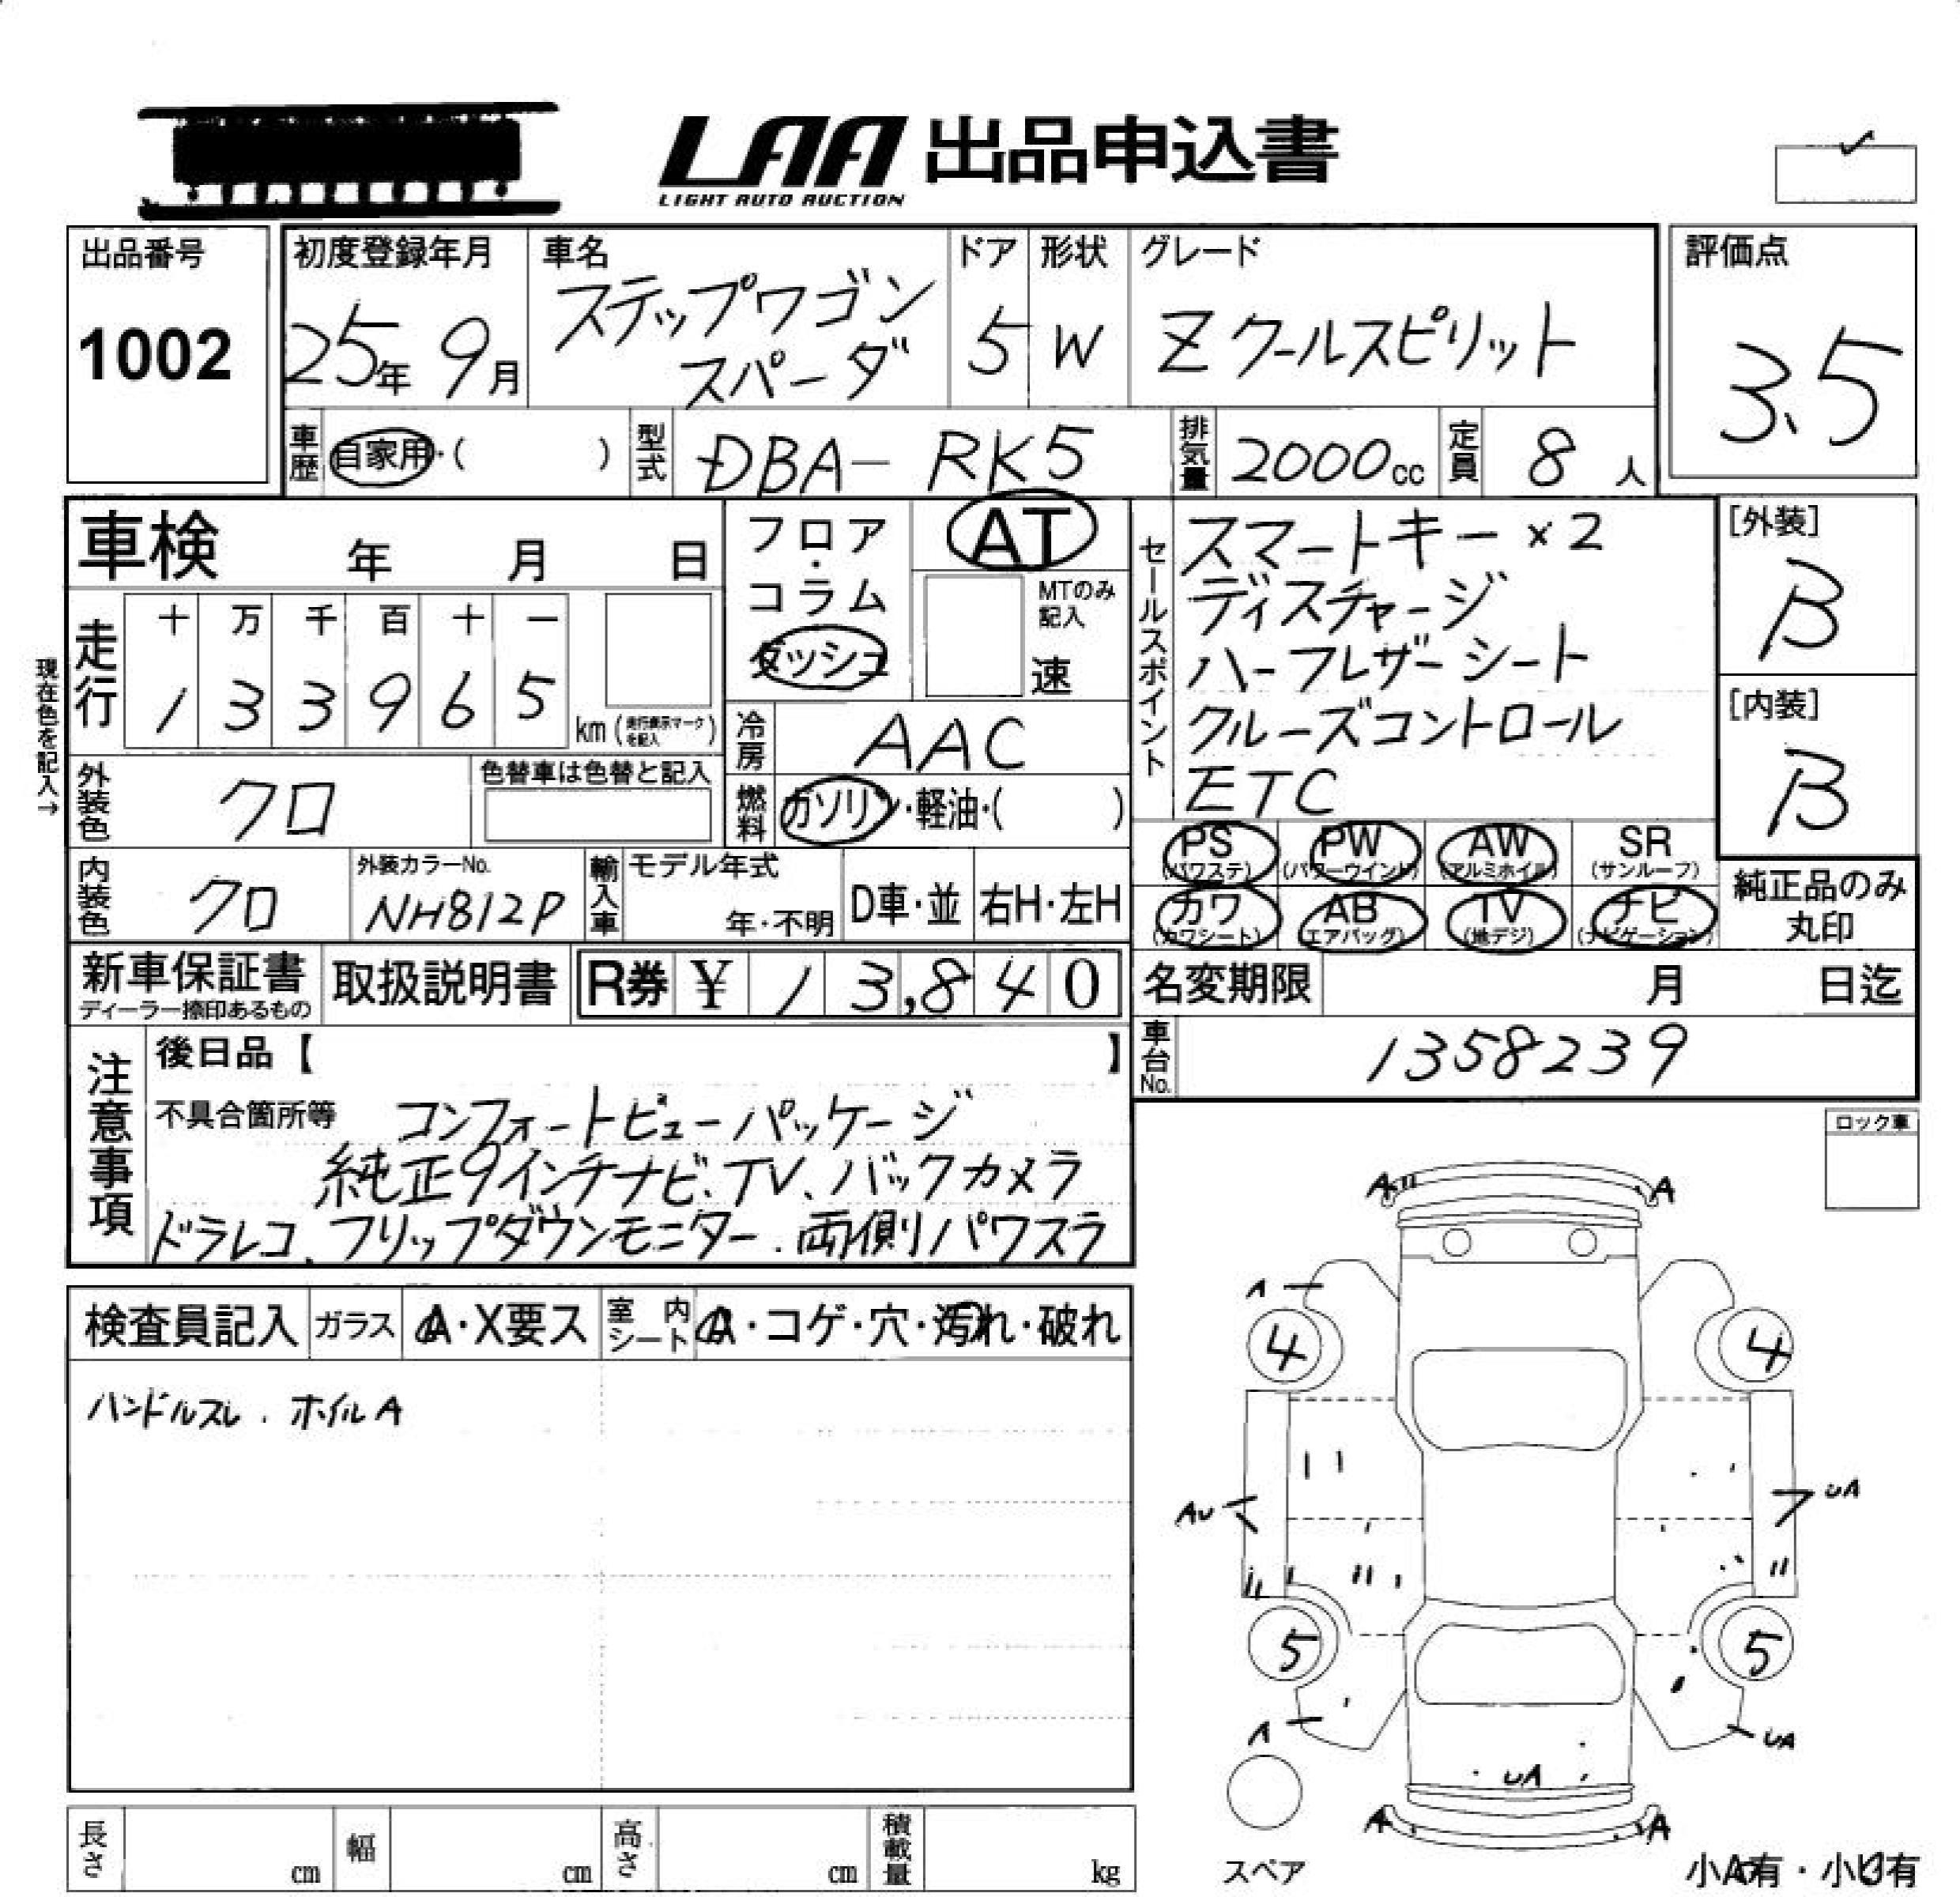 LAA 出品申込書
LIGHT AUTO AUCTION
出品番号
1002
初度登録年月
25年 9月
車名
ステップワゴン
スパーダ
ドア
5
形状
W
グレード
Z クールスピリット
評価点
3.5
車歴
自家用・( )
型式
DBA- RK5
排気量
2000cc
定員
8 人
車検 年 月 日
フロア・コラム
ダッシュ
AT
MTのみ記入
速
セールスポイント
スマートキー ×2
ディスチャージ
ハーフレザーシート
クルーズコントロール
ETC
[外装]
B
[内装]
B
現在色を記入→
走行
十 万 千 百 十 一
1 3 3 9 6 5
km (走行表示マークを記入)
冷房
AAC
外装色
クロ
色替車は色替と記入
燃料
ガソリン・軽油・( )
PS (パワステ)
PW (パワーウインド)
AW (アルミホイル)
SR (サンルーフ)
カワ (カワシート)
AB (エアバッグ)
TV (地デジ)
ナビ (ナビゲーション)
純正品のみ
丸印
内装色
クロ
外装カラーNo.
NH812P
輸入車
モデル年式
年・不明
D車・並
右H・左H
新車保証書
ディーラー捺印あるもの
取扱説明書
R券 ¥ 13,840
名変期限 月 日迄
車台No.
1358239
注意事項
後日品【 】
不具合箇所等 コンフォートビューパッケージ
純正9インチナビ、TV、バックカメラ
ドラレコ、フリップダウンモニター、両側パワスラ
ロック車
検査員記入
ガラス
A・X要ス
室内シート
・コゲ・穴・汚れ・破れ
ハンドルスレ、ホイルA
A A
A
4 4
AU UA
5 5
A UA
UA
A A
スペア
小A有・小U有
長さ cm
幅 cm
高さ cm
積載量 kg